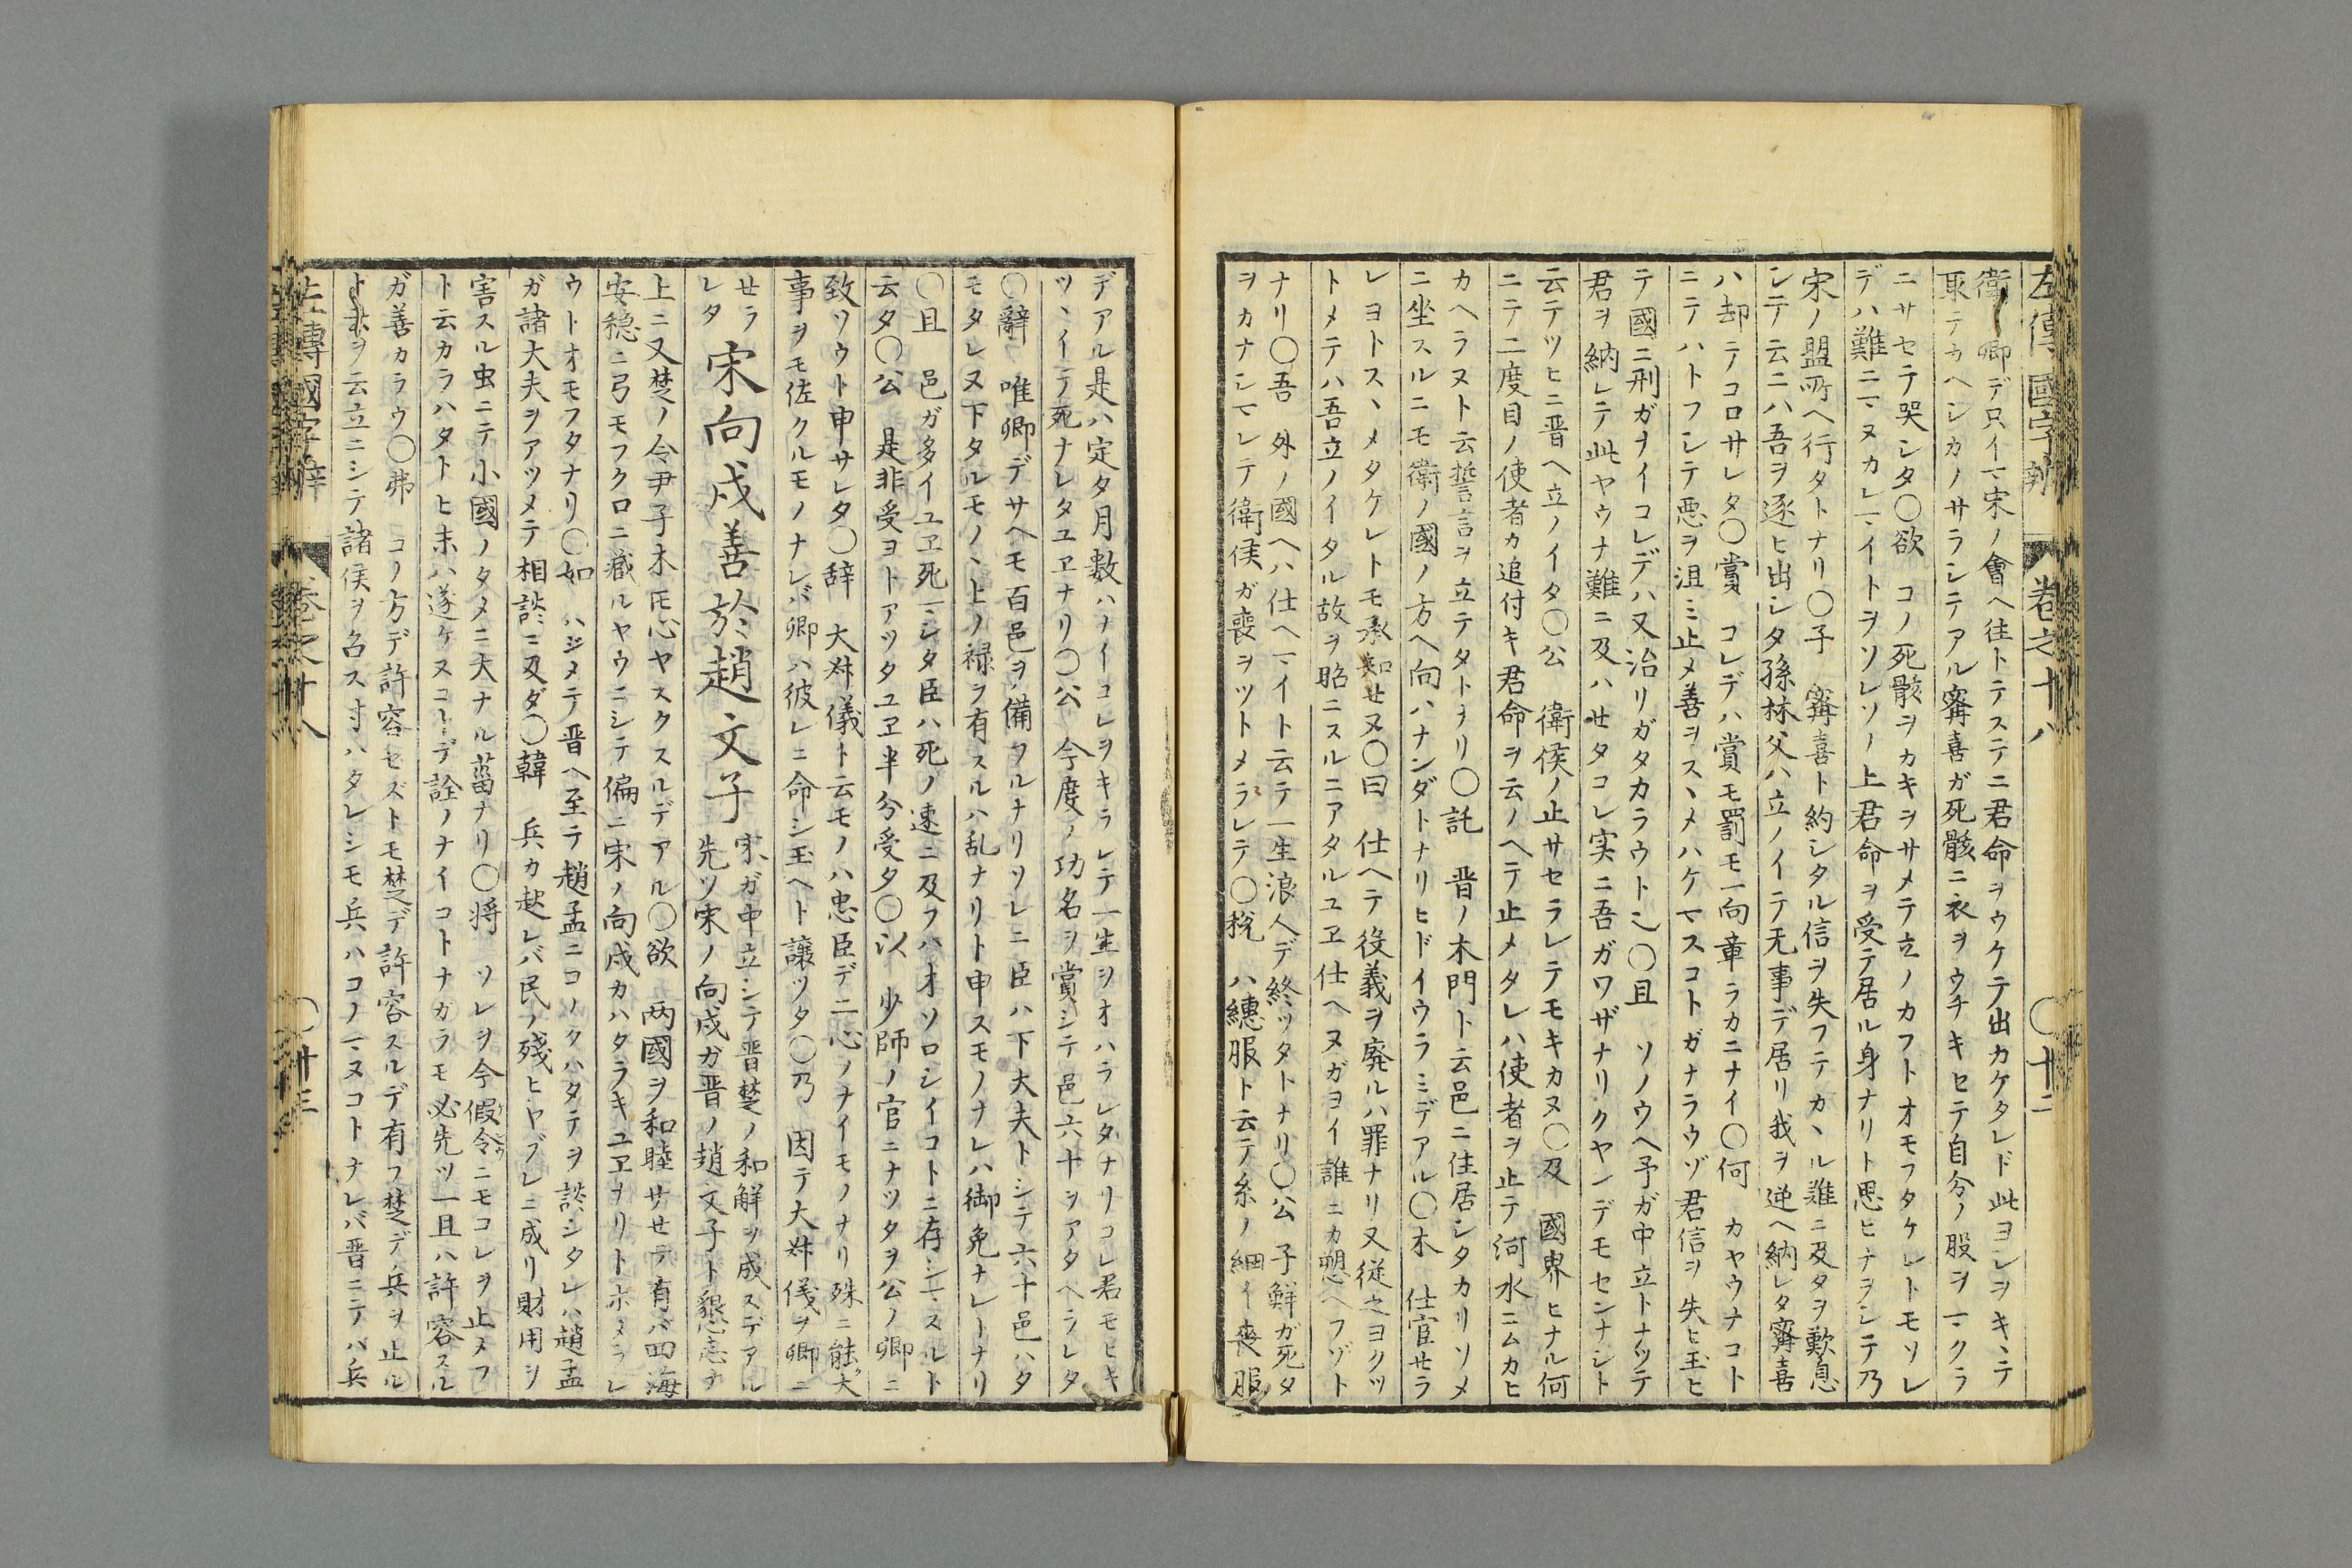 左傳國字辨 卷之十八 〇十二
衛ノ卿デ只イマ宋ノ會ヘ往トテステニ君命ヲウケテ出カケタレド此ヨシヲキヽテ
取テカヘシカノサラシテアル甯喜ガ死骸ニ衣ヲウチキセテ自分ノ股ヲマクラ
ニサセテ哭シタ〇欲 コノ死骸ヲカキヲサメテ立ノカフトオモフタケレトモソレ
デハ難ニマヌカレマイトヲソレソノ上君命ヲ受テ居ル身ナリト思ヒナヲシテ乃
宋ノ盟所ヘ行タトナリ〇子 甯喜ト約シタル信ヲ失フテカヽル難ニ及タヲ歎息
シテ云ニハ吾ヲ逐ヒ出シタ孫林父ハ立ノイテ无事デ居リ我ヲ逆ヘ納レタ甯喜
ハ却テコロサレタ〇賞 コレデハ賞モ罰モ一向章ラカニナイ〇何 カヤウナコト
ニテハトフシテ悪ヲ沮ミ止メ善ヲスヽメハケマスコトガナラウゾ君信ヲ失ヒ玉ヒ
テ國ニ刑ガナイコレデハ又治リガタカラウト也〇且 ソノウヘ予ガ中立トナツテ
君ヲ納レテ此ヤウナ難ニ及ハセタコレ実ニ吾ガワザナリクヤンデモセンナシト
云テツヒニ晋ヘ立ノイタ〇公 衛侯ノ止サセラレテモキカヌ〇及 國界ヒナル何
ニテ二度目ノ使者カ追付キ君命ヲ云ノヘテ止メタレハ使者ヲ止テ河水ニムカヒ
カヘラヌト云誓言ヲ立テタトナリ〇託 晋ノ木門ト云邑ニ住居シタカリソメ
ニ坐スルニモ衛ノ國ノ方ヘ向ハナンダトナリヒドイウラミデアル〇木 仕官セラ
レヨトスヽメタケレトモ承知セヌ〇曰 仕ヘテ役義ヲ廃ルハ罪ナリ又従之ヨクツ
トメテハ吾立ノイタル故ヲ昭ニスルニアタルユヱ仕ヘヌガヨイ誰ニカ愬ヘフゾト
ナリ〇吾 外ノ國ヘハ仕ヘマイト云テ一生浪人デ終ツタトナリ〇公 子鮮ガ死タ
ヲカナシマレテ衛侯ガ喪ヲツトメラレテ〇税 ハ繐服ト云テ糸ノ細イ喪服
デアル是ハ定タ月數ハナイコレヲキラレテ一生ヲオハラレタナリコレ君モヒキ
ツヽイテ死ナレタユヱナリ〇公 今度ノ功名ヲ賞シテ邑六十ヲアタヘラレタ
〇辭 唯卿デサヘモ百邑ヲ備ヲルナリソレニ臣ハ下大夫トシテ六十邑ハタ
モタレヌ下タルモノヽ上ノ禄ラ有スルハ乱ナリト申スモノナレハ御免ナレトナリ
〇且 邑ガ多イユヱ死マシタ臣ハ死ノ速ニ及フハオソロシイコトニ存シマスルト
云タ〇公 是非受ヨトアツタユヱ半分受タ〇以 少師ノ官ニナツタヲ公ノ卿ニ
致ソウト申サレタ〇辞 大叔儀ト云モノハ忠臣デ二心ノナイモノナリ殊ニ能大
事ヲモ佐クルモノナレバ卿ハ彼レニ命シ玉ヘト譲ツタ〇乃 因テ大叔儀ヲ卿ニ
セラレタ 宋向戌善於趙文子 宋ガ中立シテ晋楚ノ和解ヲ成スデアル先ツ宋ノ向戌ガ晋ノ趙文子ト懇志ナ
上ニ又楚ノ令尹子木モ心ヤスクスルデアル〇欲 两國ヲ和睦サセテ有バ四海
安穏ニ弓モフクロニ藏ルヤウニシテ偏ニ宋ノ向戌カハタラキユヱナリトホメラレ
ウトオモフタナリ〇如 ハジメテ晋ヘ至テ趙孟ニコノクハタテヲ談シタレハ趙孟
ガ諸大夫ヲアツメテ相談ニ及ダ〇韓 兵カ起レバ民ノ殘ヒヤブレニ成リ財用ヲ
害スル虫ニテ小國ノタメニ大ナル菑ナリ〇将 ソレヲ今假令ニモコレヲ止メフ
ト云カラハタトヒ末ハ遂ケヌコトデ詮ノナイコトナガラモ必先ツ一旦ハ許容スル
ガ善カラウ〇弗 コノ方デ許容セズトモ楚デ許容スルデ有フ楚デ兵ヲ止ル
ト求ヲ云立ニシテ諸侯ヲ召ス寸ハタレシモ兵ハコノマヌコトナレバ晋ニテバ兵
左傳國字辨 卷之十八 〇十三